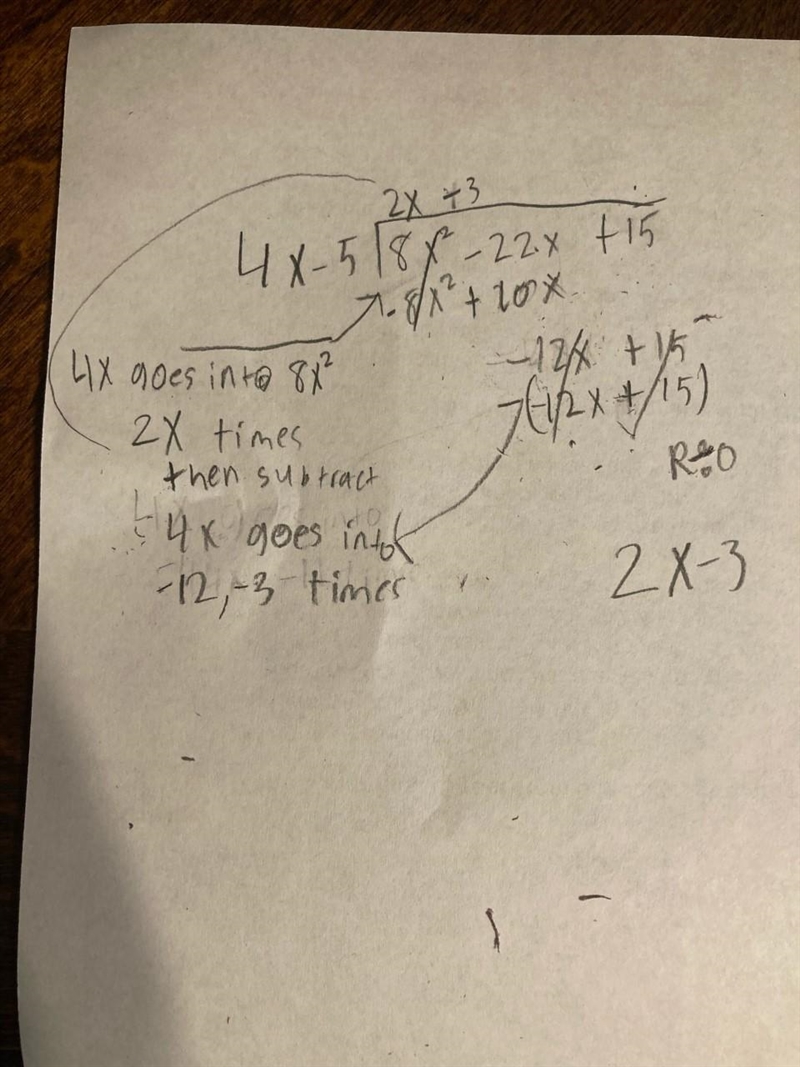 2x +3
4x-5 8x² -22x +15
-8x² + 10x
-12x + 15
-(-12x + 15)
R=0
2x-3
4x goes into 8x²
2x times
then subtract
4x goes into
-12, -3 times